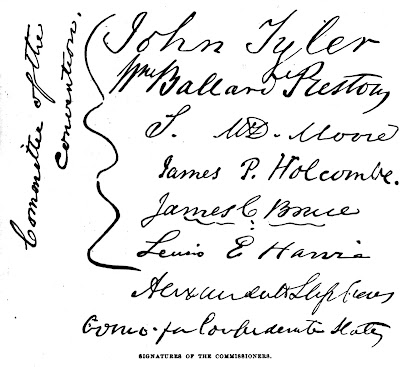 Committee of the
Convention.
John Tyler
Wm Ballard Preston
S. McD. Moore
James P. Holcombe.
James C. Bruce
Lewis E Harvie
Alexander H Stephens
Como. for Confederate States
SIGNATURES OF THE COMMISSIONERS.